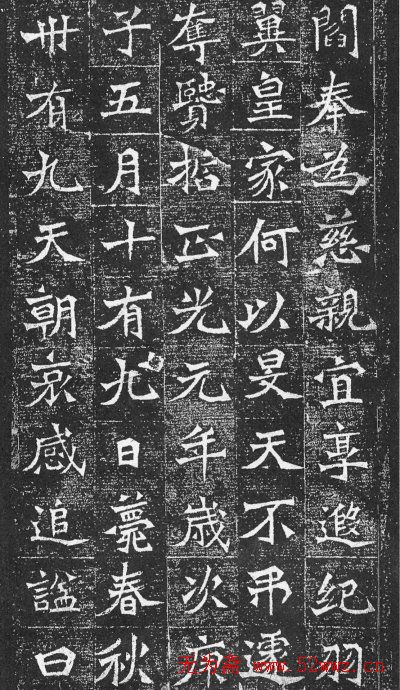 閻奉為慈親宜享遐紀羽
翼皇家何以旻天不弔
奪賢哲正光元年歲次庚
子五月十有九日薨春秋
卅有九天朝哀感追謚曰